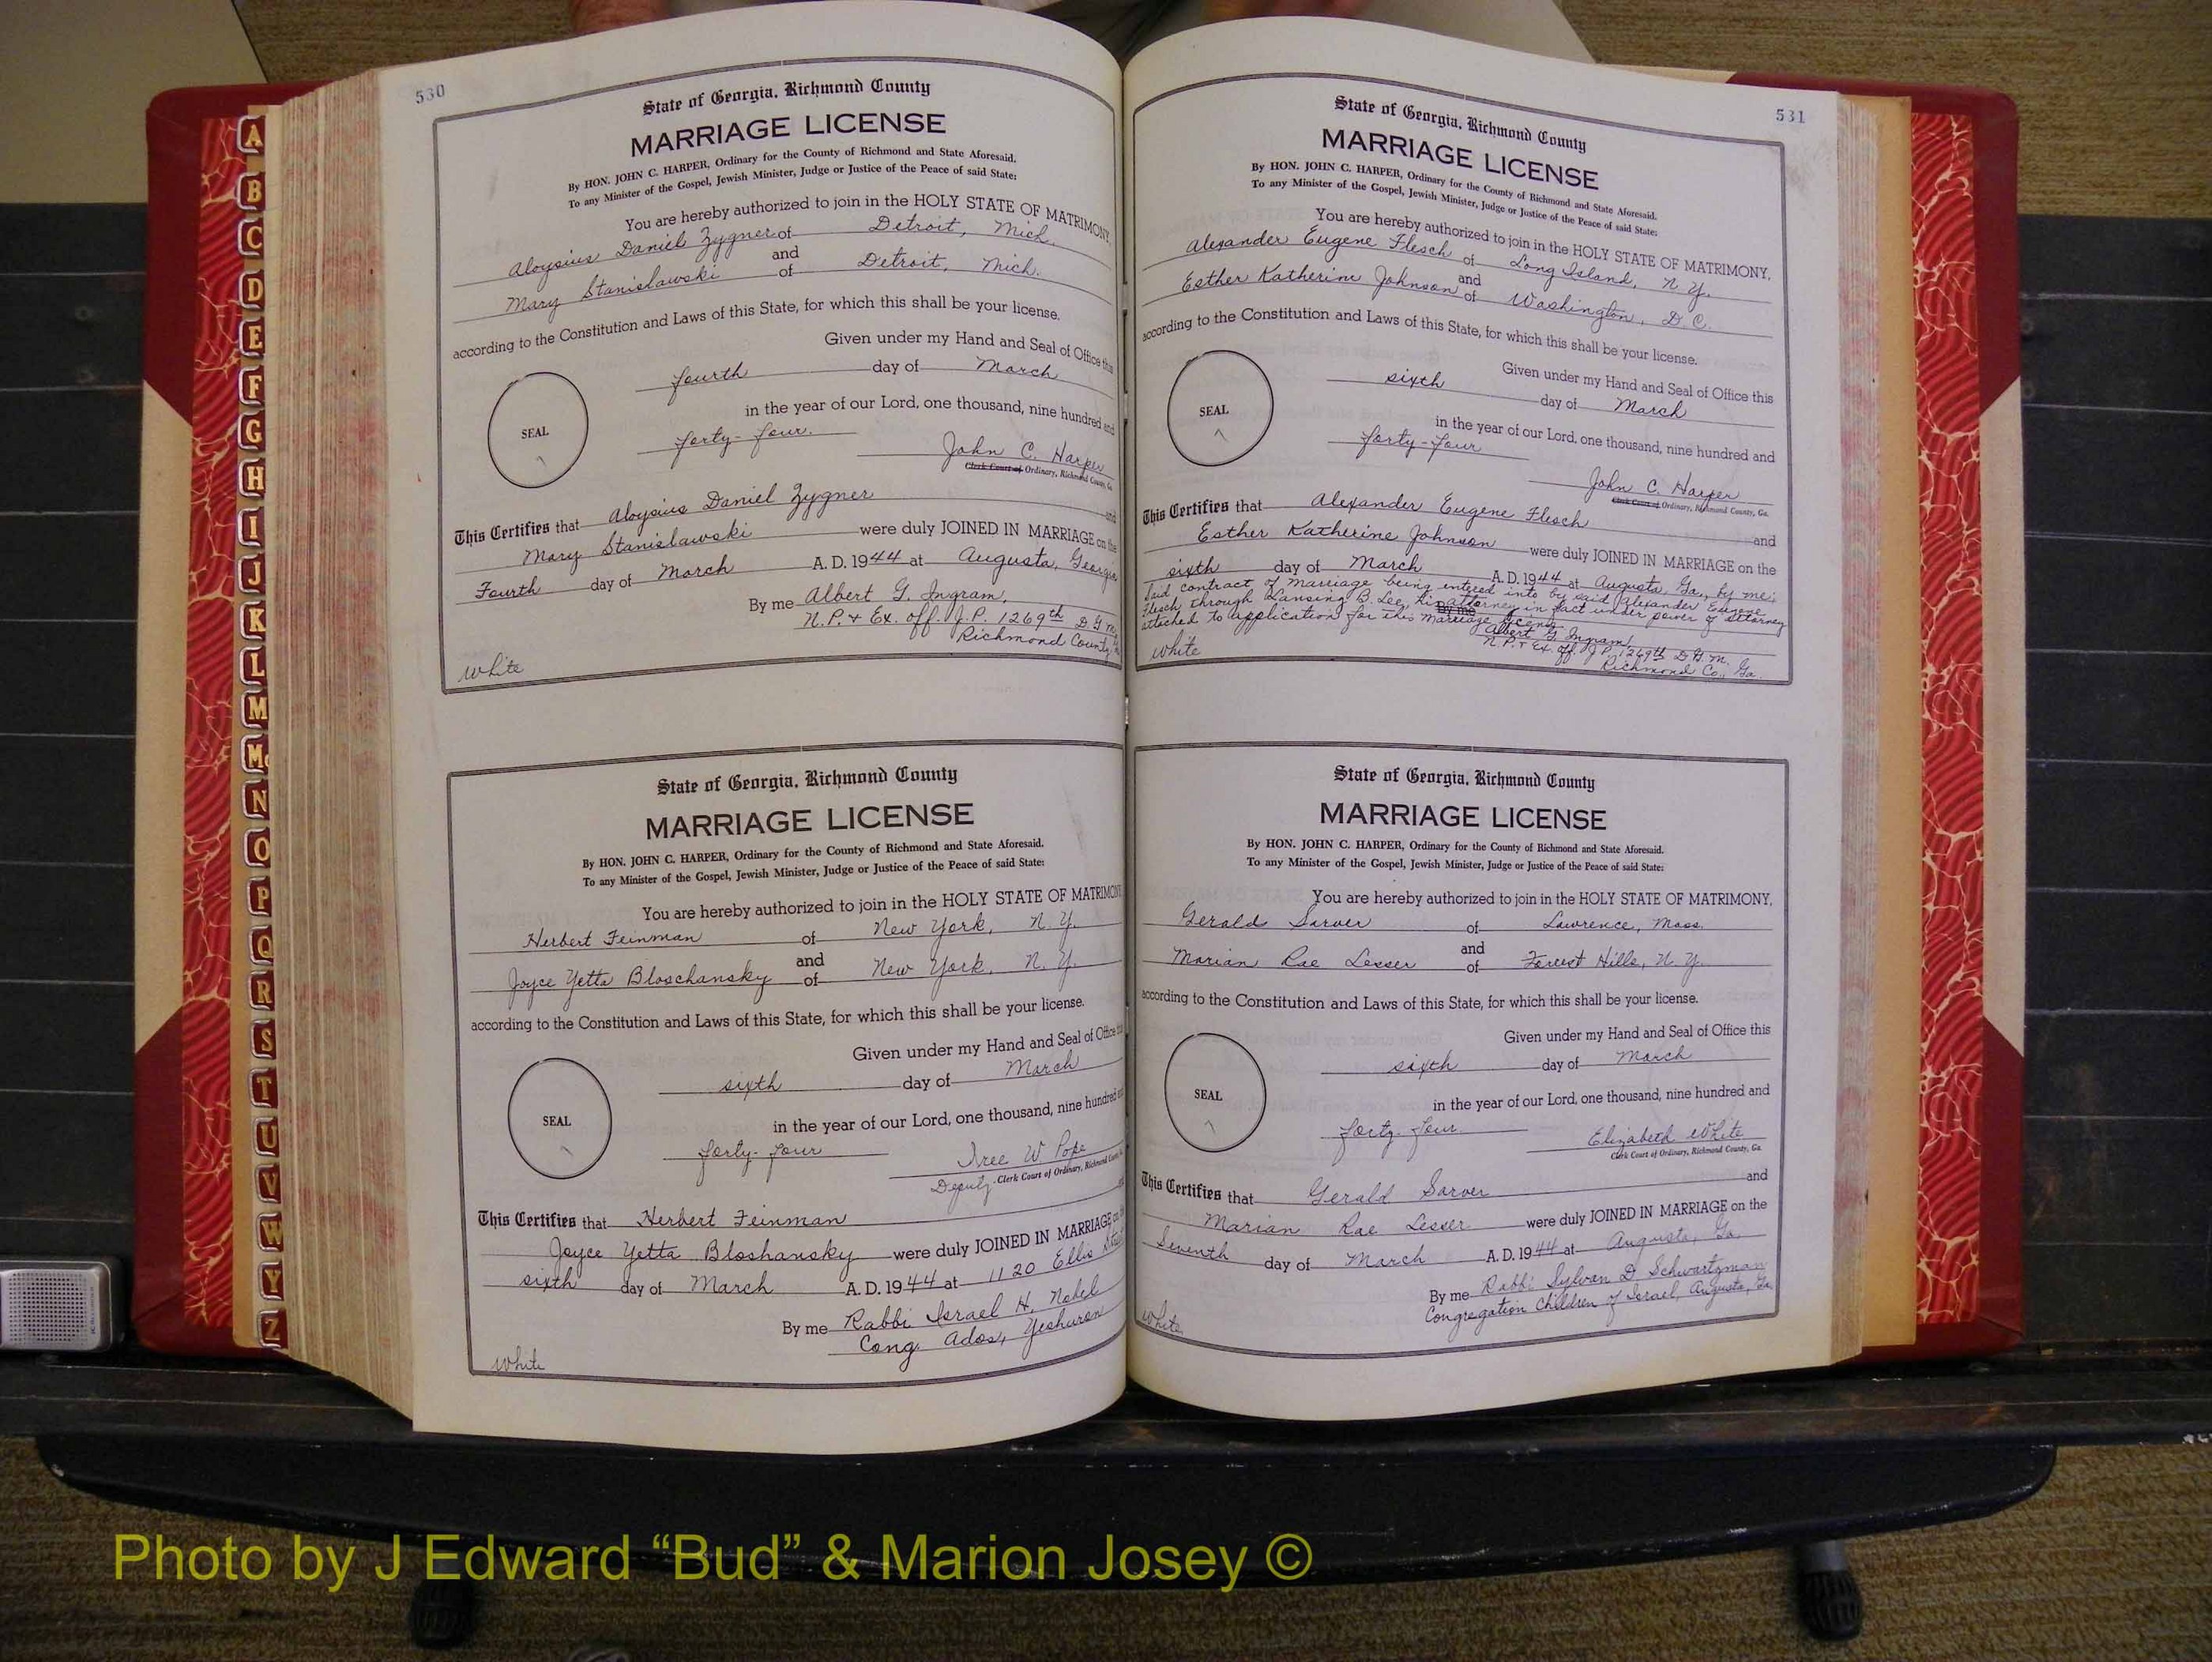 A
B
C
D
E
F
G
H
I
J
K
L
M
Mc
N
O
P
Q
R
S
T
U
V
W
Y
Z
530
State of Georgia, Richmond County
MARRIAGE LICENSE
By HON. JOHN C. HARPER, Ordinary for the County of Richmond and State Aforesaid.
To any Minister of the Gospel, Jewish Minister, Judge or Justice of the Peace of said State:
You are hereby authorized to join in the HOLY STATE OF MATRIMONY,
Aloysius Daniel Zygner of Detroit, Mich.
and
Mary Stanislawski of Detroit, Mich.
according to the Constitution and Laws of this State, for which this shall be your license.
Given under my Hand and Seal of Office this
fourth day of March
in the year of our Lord, one thousand, nine hundred and
SEAL
forty-four.
John C. Harper
Clerk Court of Ordinary, Richmond County, Ga.
This Certifies that Aloysius Daniel Zygner and
Mary Stanislawski were duly JOINED IN MARRIAGE on the
Fourth day of March A. D. 1944 at Augusta, Georgia
By me Albert G. Ingram,
N.P. & Ex. off. J.P. 1269th D.G.M.
Richmond County,
White
State of Georgia, Richmond County
MARRIAGE LICENSE
By HON. JOHN C. HARPER, Ordinary for the County of Richmond and State Aforesaid.
To any Minister of the Gospel, Jewish Minister, Judge or Justice of the Peace of said State:
You are hereby authorized to join in the HOLY STATE OF MATRIMONY,
Herbert Feinman of New York, N.Y.
and
Joyce Yetta Bloschansky of New York, N.Y.
according to the Constitution and Laws of this State, for which this shall be your license.
Given under my Hand and Seal of Office
sixth day of March
in the year of our Lord, one thousand, nine hundred
SEAL
forty-four
W Pope
Deputy Clerk Court of Ordinary, Richmond
This Certifies that Herbert Feinman
Joyce Yetta Bloshansky were duly JOINED IN MARRIAGE on
sixth day of March A. D. 1944 at 1120 Ellis Street
By me Rabbi Israel H. Nobel
Cong. Adas, Yeshuron
White
531
State of Georgia, Richmond County
MARRIAGE LICENSE
By HON. JOHN C. HARPER, Ordinary for the County of Richmond and State Aforesaid.
To any Minister of the Gospel, Jewish Minister, Judge or Justice of the Peace of said State:
You are hereby authorized to join in the HOLY STATE OF MATRIMONY,
Alexander Eugene Flesch of Long Island, N.Y.
and
Esther Katherine Johnson of Washington, D.C.
according to the Constitution and Laws of this State, for which this shall be your license.
Given under my Hand and Seal of Office this
sixth day of March
in the year of our Lord, one thousand, nine hundred and
SEAL
forty-four
John C. Harper
Clerk Court of Ordinary, Richmond County, Ga.
This Certifies that Alexander Eugene Flesch and
Esther Katherine Johnson were duly JOINED IN MARRIAGE on the
sixth day of March A. D. 1944 at Augusta, Ga., by me;
Said contract of Marriage being entered into by said Alexander Eugene
Flesch through Lansing B. Lee, his attorney in fact under power of attorney
By me
attached to application for this marriage license.
Albert G. Ingram
N.P. & Ex. off. J.P. 1269th D.G.M.
Richmond Co., Ga.
White
State of Georgia, Richmond County
MARRIAGE LICENSE
By HON. JOHN C. HARPER, Ordinary for the County of Richmond and State Aforesaid.
To any Minister of the Gospel, Jewish Minister, Judge or Justice of the Peace of said State:
You are hereby authorized to join in the HOLY STATE OF MATRIMONY,
Gerald Sarver of Lawrence, Mass.
and
Marian Rae Lesser of Forest Hills, N.Y.
according to the Constitution and Laws of this State, for which this shall be your license.
Given under my Hand and Seal of Office this
sixth day of March
in the year of our Lord, one thousand, nine hundred and
SEAL
forty-four
Elizabeth White
Clerk Court of Ordinary, Richmond County, Ga.
This Certifies that Gerald Sarver and
Marian Rae Lesser were duly JOINED IN MARRIAGE on the
Seventh day of March A. D. 1944 at Augusta, Ga.
By me Rabbi Sylvan D Schwartzman
Congregation Children of Israel, Augusta, Ga.
White
Photo by J Edward “Bud” & Marion Josey ©